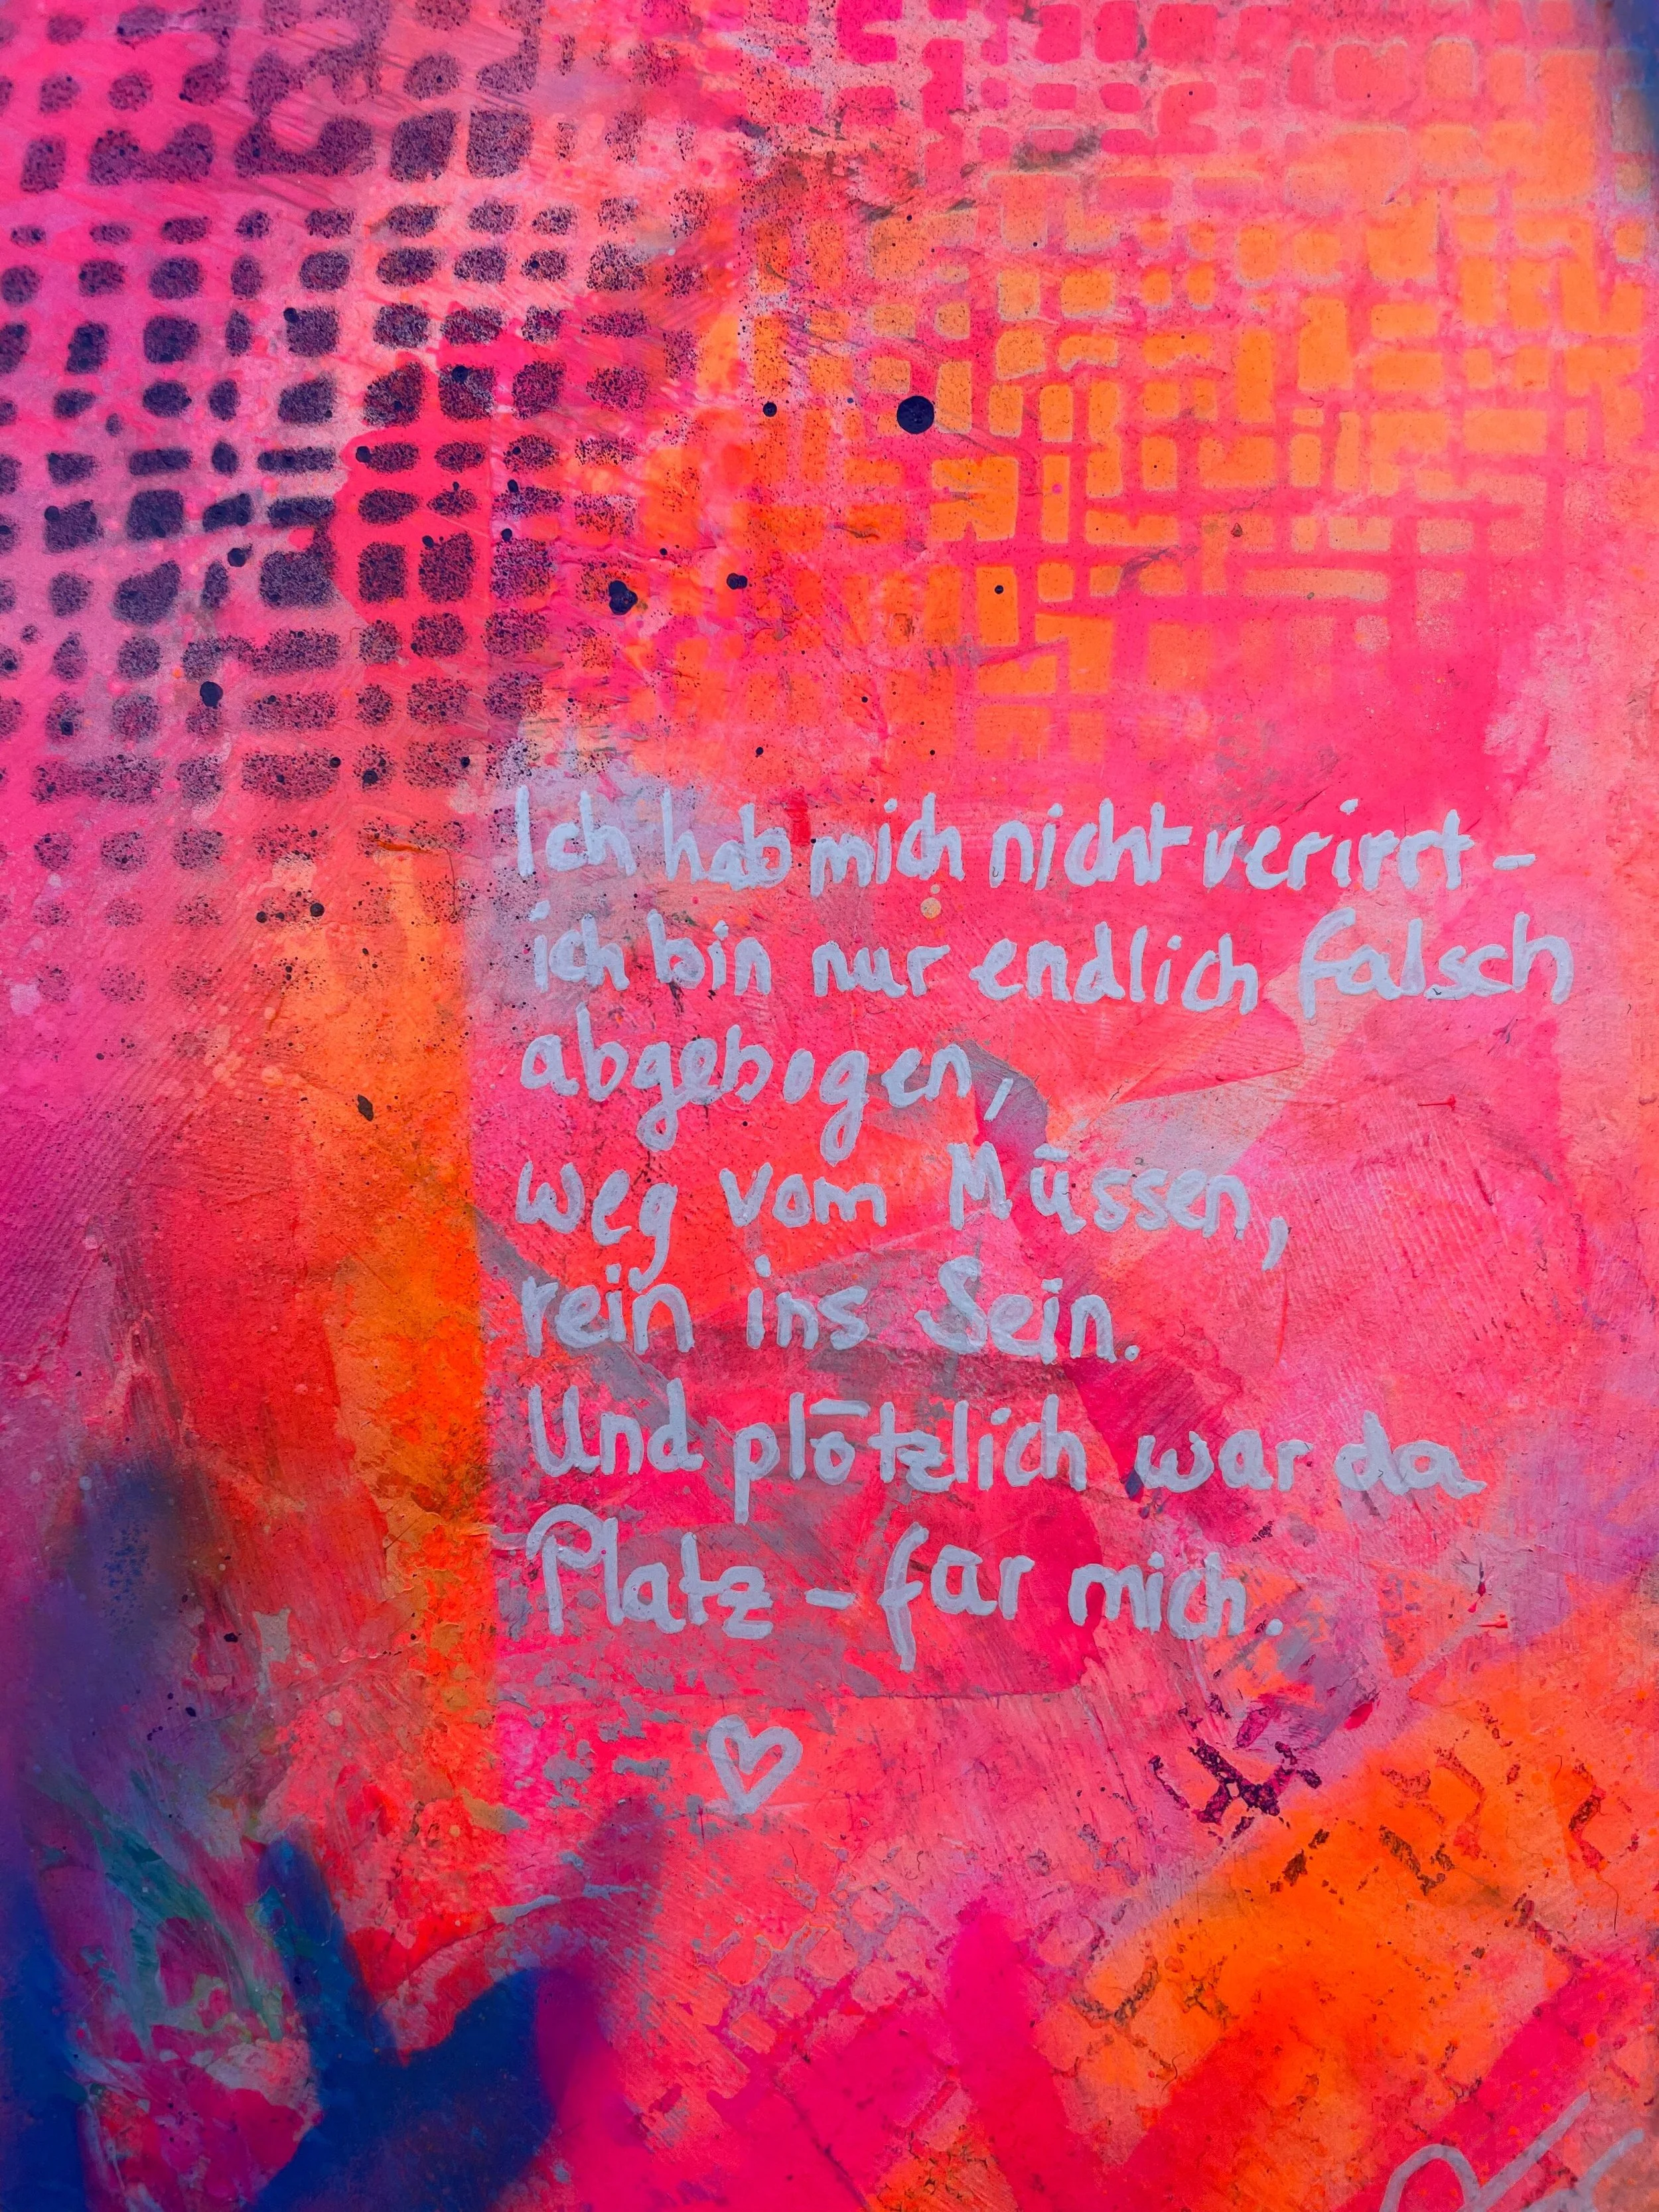 Ich hab mich nicht verirrt –
ich bin nur endlich falsch
abgebogen,
weg vom Müssen,
rein ins Sein.
Und plötzlich war da
Platz – für mich.